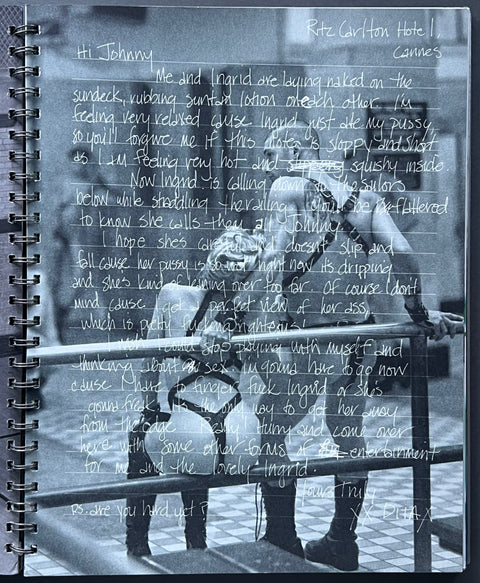 Ritz Carlton Hotel,
Cannes
Hi Johnny
Me and Ingrid are laying naked on the
sundeck, rubbing suntan lotion on each other. I'm
feeling very relaxed cause Ingrid just ate my pussy
so you'll forgive me if this note is sloppy and short
as I am feeling very hot and squishy inside
Now Ingrid is calling down to the sailors
below while straddling the railing. You'd be flattered
to know she calls them all Johnny.
I hope she's careful and doesn't slip and
fall cause her pussy is so wet right now its dripping
and she's kind of leaning over too far. Of course I don't
mind cause I get a perfect view of her ass,
which is pretty fucking righteous!
I wish I could stop playing with myself and
thinking about sex. I'm gonna have to go now
cause I have to finger fuck Ingrid or she's
gonna freak. It's the only way to get her away
from the edge. Really! Hurry and come over
here with some other forms of entertainment
for me and the lovely Ingrid.
Yours Truly
XX DITA X
PS. are you hard yet?